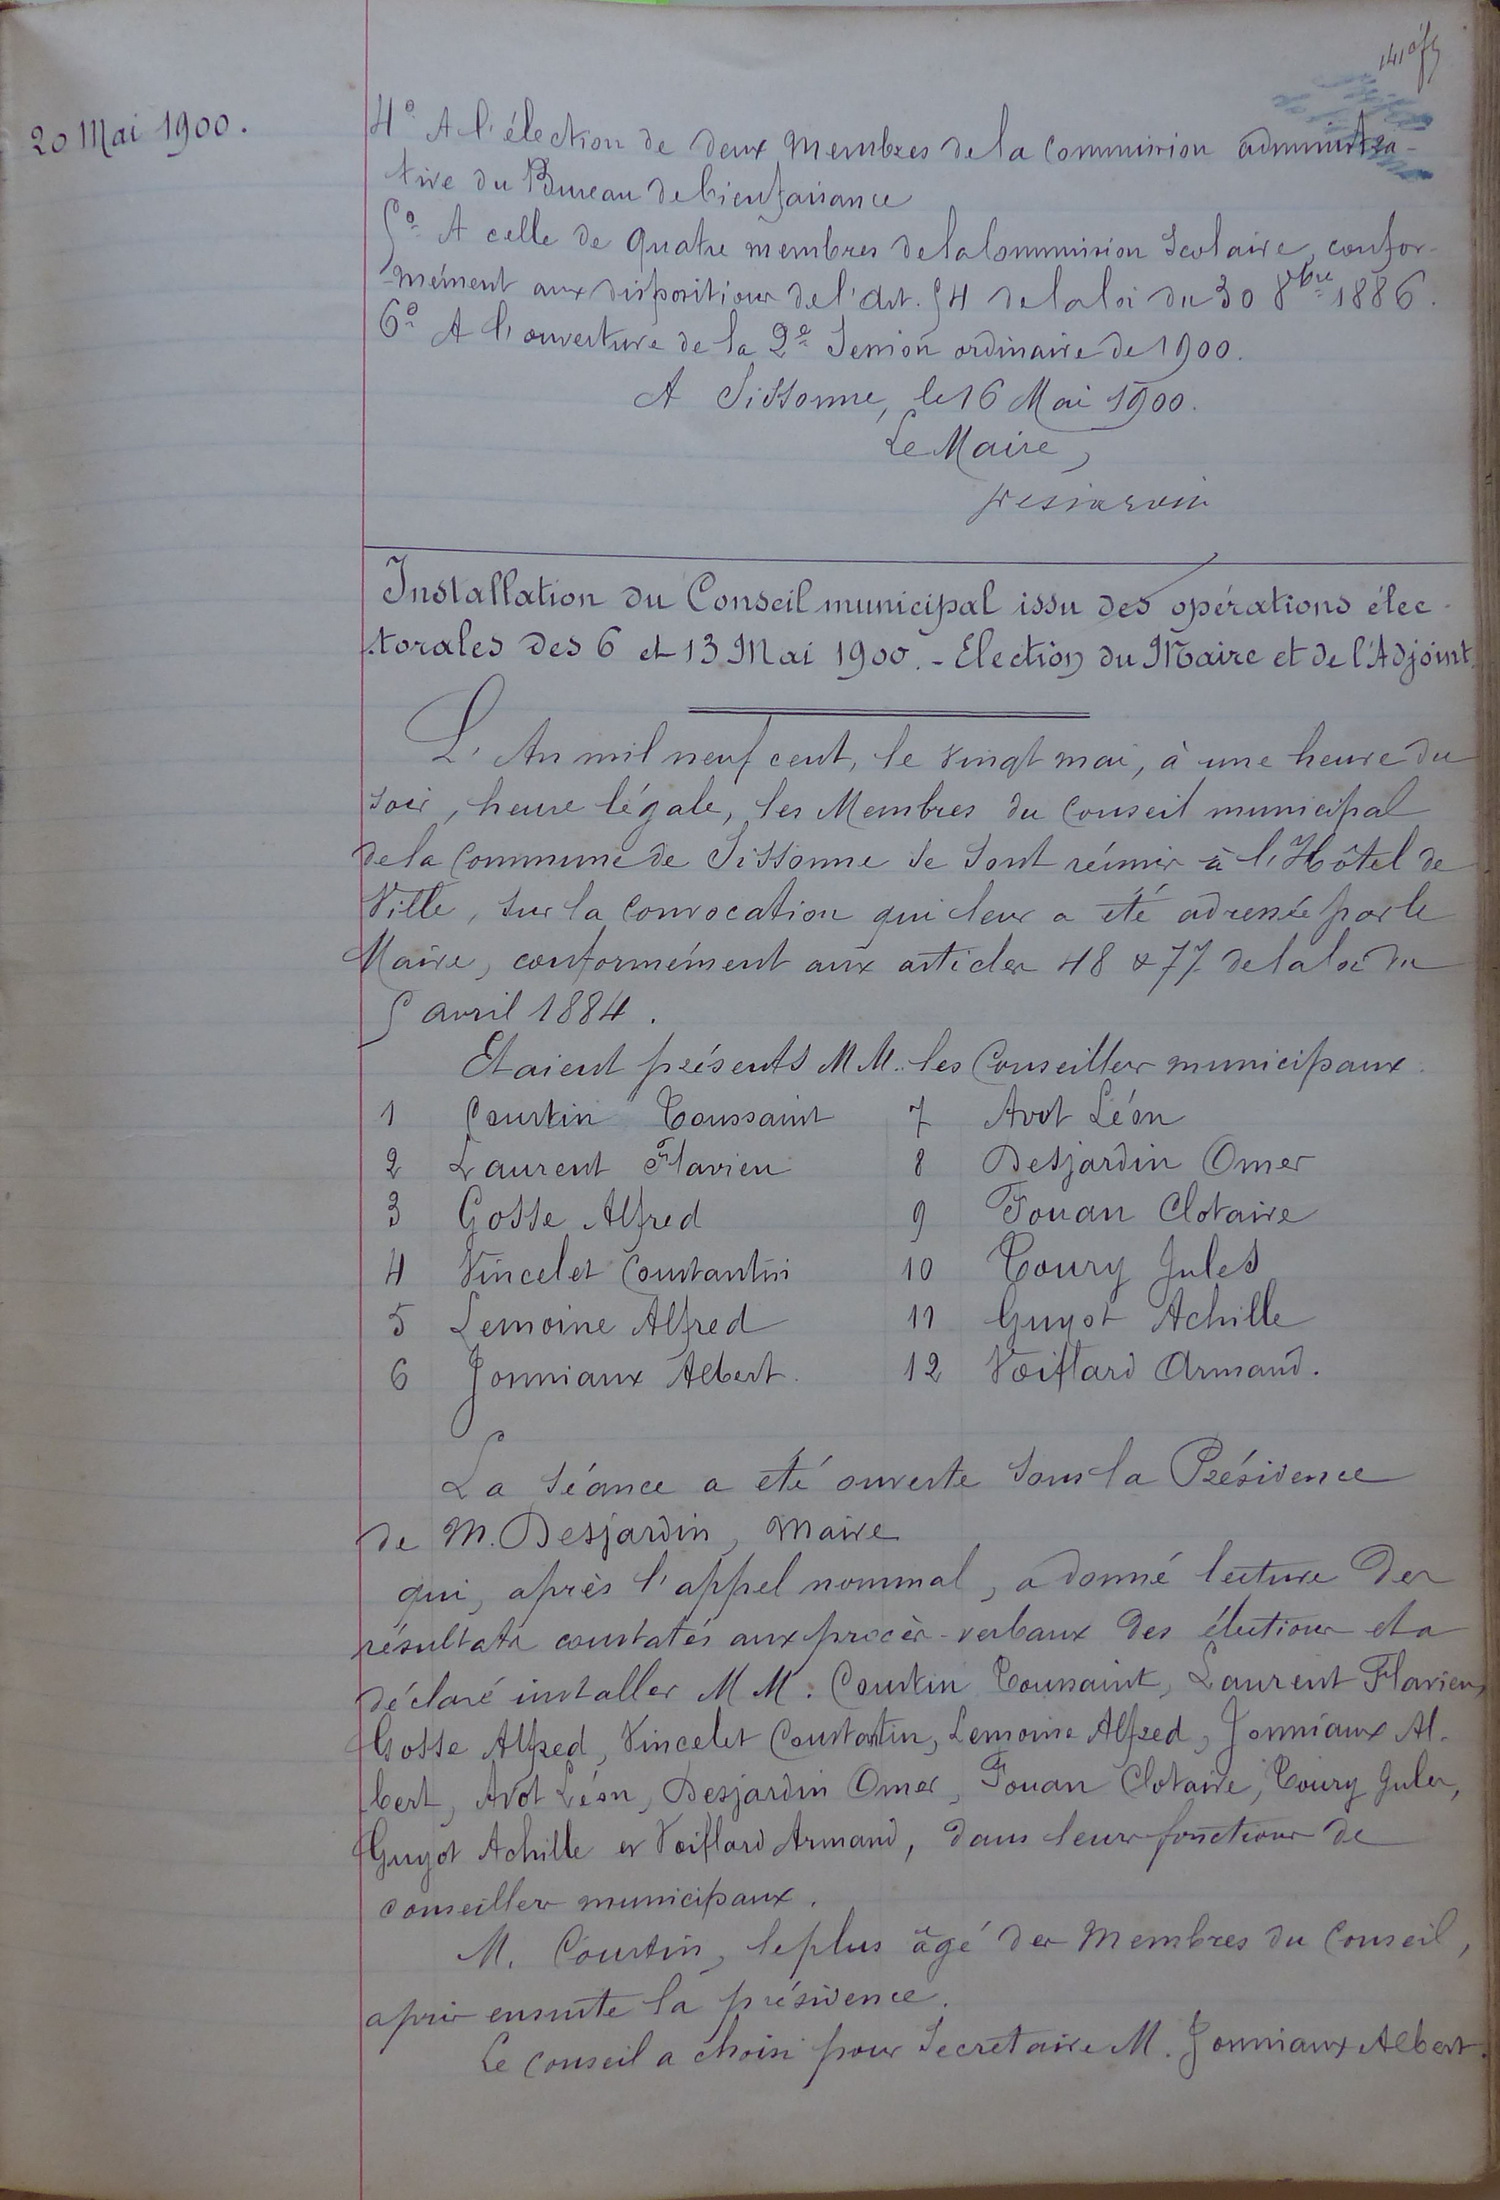 20 Mai 1900.
4° A l'élection de deux Membres de la Commission administra-
tive du Bureau de bienfaisance
5° A celle de quatre membres de la Commission Scolaire, confor-
-mément aux dispositions de l'art. 54 de la loi du 30 8bre 1886.
6° A l'ouverture de la 2e Session ordinaire de 1900.
A Sissonne, le 16 Mai 1900.
Le Maire,
Desjardin
Installation du Conseil municipal issu des opérations élec-
torales des 6 et 13 Mai 1900. - Election du Maire et de l'Adjoint.
L'An mil neuf cent, le vingt mai, à une heure du
soir, heure légale, les Membres du Conseil municipal
de la Commune de Sissonne se sont réunis à l'Hôtel de
Ville, sur la convocation qui leur a été adressée par le
Maire, conformément aux articles 48 & 77 de la loi du
5 avril 1884.
Etaient présents MM. les Conseillers municipaux.
1 Courtin Toussaint 7 Avot Léon
2 Laurent Flavien 8 Desjardin Omer
3 Gosse Alfred 9 Fouan Clotaire
4 Vincelet Constantin 10 Toury Jules
5 Lemoine Alfred 11 Guyot Achille
6 Jonniaux Albert. 12 Voiflard Armand.
La séance a été ouverte sous la Présidence
de M. Desjardin, Maire
qui, après l'appel nominal, a donné lecture des
résultats constatés aux procès-verbaux des élections et a
déclaré installer MM. Courtin Toussaint, Laurent Flavien,
Gosse Alfred, Vincelet Constantin, Lemoine Alfred, Jonniaux Al-
bert, Avot Léon, Desjardin Omer, Fouan Clotaire, Toury Jules,
Guyot Achille et Voiflard Armand, dans leurs fonctions de
conseillers municipaux.
M. Courtin, le plus âgé des Membres du Conseil,
a pris ensuite la présidence.
Le Conseil a choisi pour Secrétaire M. Jonniaux Albert.